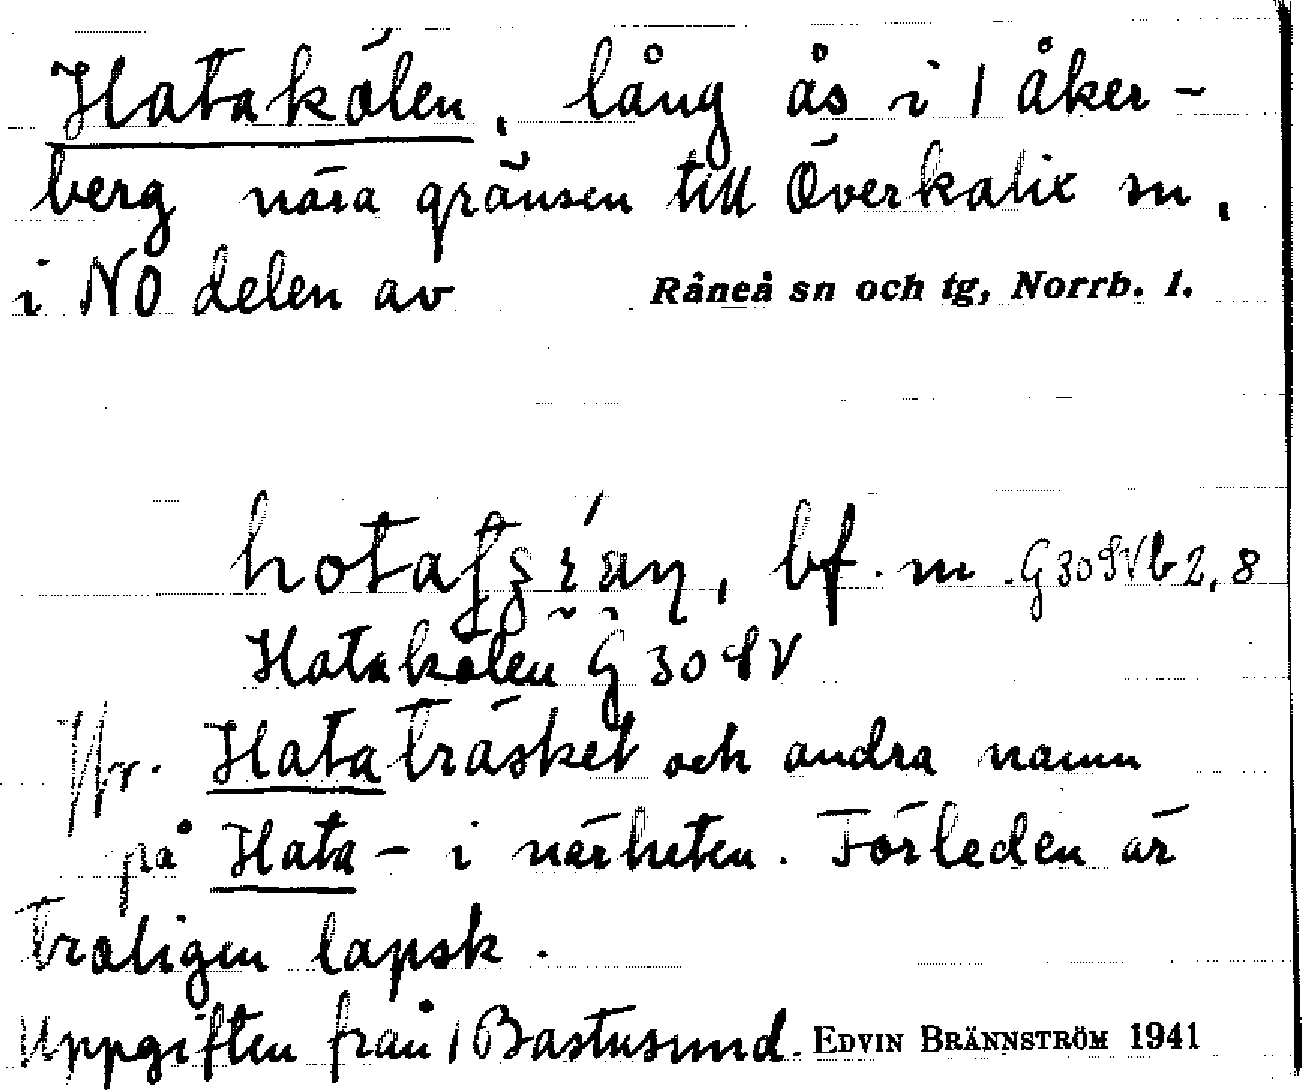 Hatakölen, lång ås i / åker-
berg nära gränsen till Överkalix sn,
i NO delen av Råneå sn och tg, Norrb. l.
bf. m. G30SVb2,8
Hatakölen G30SV
Jfr. Hataträsket och andra namn
på Hata- i närheten. Förleden är
troligen lapsk.
Uppgiften från / Bastusund. EDVIN BRÄNNSTRÖM 1941